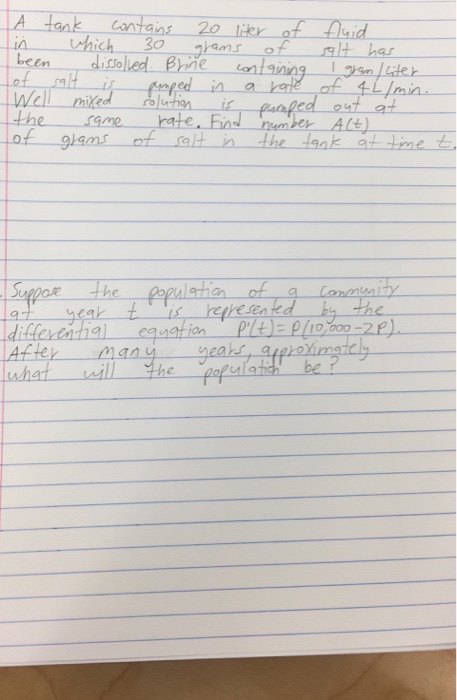 A tank contains 20 liter of fluid
in which 30 grams of salt has
been dissolved. Brine containing 1 gram/liter
of salt is pumped in a rate of 4L/min.
Well mixed solution is pumped out at
the same rate. Find number A(t)
of grams of salt in the tank at time t.
Suppose the population of a community
at year t is represented by the
differential equation P'(t)=P(10,000-2P).
After many years, approximately
what will the population be?